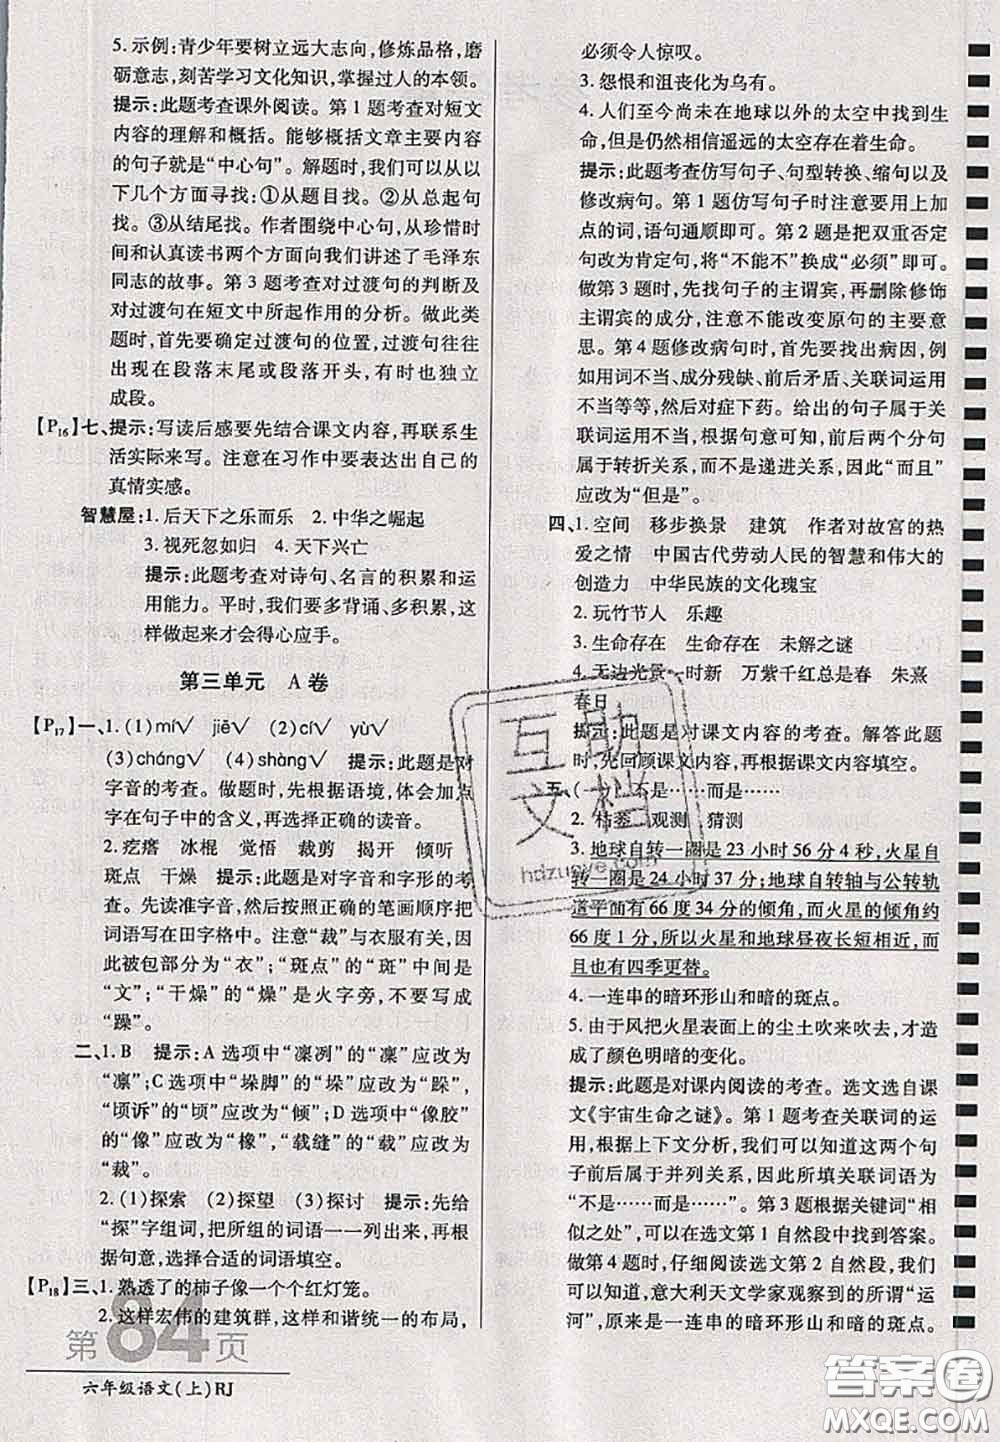 5. 示例:青少年要树立远大志向,修炼品格,磨
砺意志,刻苦学习文化知识,掌握过人的本领。
提示:此题考查课外阅读。第 1 题考查对短文
内容的理解和概括。能够概括文章主要内容
的句子就是“中心句”。解题时,我们可以从以
下几个方面寻找:①从题目找。②从总起句
找。③从结尾找。作者围绕中心句,从珍惜时
时间和认真读书两个方面向我们讲述了毛泽东
同志的故事。第 3 题考查对过渡句的判断及
对过渡句在短文中所起作用的分析。做此类
题时,首先要确定过渡句的位置,过渡句往往
出现在段落末尾或段落开头,有时也会独立
成段。
【P16】七、提示:写读后感要先结合课文内容,再联系生
活实际来写。注意在习作中要表达出自己的
真情实感。
智慧屋:1. 后天下之乐而乐 2. 中华之崛起
3. 视死忽如归 4. 天下兴亡
提示:此题考查对诗句、名言的积累和运
用能力。平时,我们要多背诵、多积累,这
样做起来才会得心应手。
第三单元 A 卷
【P17】一、1. (1) mí√ jiē√ (2) cí√ yù√
(3) cháng√ (4) shàng√ 提示:此题是对
字音的考查。做题时,先根据语境,体会加点
字在句子中的含义,再选择正确的读音。
2. 疙瘩 冰棍 觉悟 裁剪 揭开 倾听
斑点 干燥 提示:此题是对字音和字形的考
查。先读准字音,然后按照正确的笔画顺序把
词语写在田字格中。注意“裁”与衣服有关,因
此被包部分为“衣”;“斑点”的“斑”中间是
“文”;“干燥”的“燥”是火字旁,不要写成
“躁”。
二、1. B 提示:A 选项中“凜冽”的“凜”应改为
“凛”;C 选项中“垛脚”的“垛”应改为“跺”,
“顷诉”的“顷”应改为“倾”;D 选项中“像胶”
的“像”应改为“橡”,“载缝”的“载”应改为
“裁”。
2. (1)探索 (2)探望 (3)探讨 提示:先给
“探”字组词,把所组的词语一一列出来,再根
据句意,选择合适的词语填空。
【P18】三、1. 熟透了的柿子像一个个红灯笼。
2. 这样宏伟的建筑群,这样和谐统一的布局,
第84页
六年级语文(上)RJ
必须令人惊叹。
3. 怨恨和沮丧化为乌有。
4. 人们至今尚未在地球以外的太空中找到生
命,但是仍然相信遥远的太空存在着生命。
提示:此题考查仿写句子、句型转换、缩句以及
修改病句。第 1 题仿写句子时注意要用上加
点的词,语句通顺即可。第 2 题是把双重否定
句改为肯定句,将“不能不”换成“必须”即可。
做第 3 题时,先找句子的主谓宾,再删除修饰
主谓宾的成分,注意不能改变原句的主要意
思。第 4 题修改病句时,首先要找出病因,例
如用词不当、成分残缺、前后矛盾、关联词运用
不当等等,然后对症下药。给出的句子属于关
联词运用不当,根据句意可知,前后两个分句
属于转折关系,而不是递进关系,因此“而且”
应改为“但是”。
四、1. 空间 移步换景 建筑 作者对故宫的热
爱之情 中国古代劳动人民的智慧和伟大的
创造力 中华民族的文化瑰宝
2. 玩竹节人 乐趣
3. 生命存在 生命存在 未解之谜
4. 无边光景一时新 万紫千红总是春 朱熹
春日
提示:此题是对课文内容的考查。解答此题
时,先回顾课文内容,再根据课文内容填空。
五、(一)1. 不是……而是……
2. 枯萎 观测 猜测
3. 地球自转一圈是 23 小时 56 分 4 秒,火星自
转一圈是 24 小时 37 分;地球自转轴与公转轨
道平面有 66 度 34 分的倾角,而火星的倾角约
66 度 1 分,所以火星和地球昼夜长短相近,而
且也有四季更替。
4. 一连串的暗环形山和暗的斑点。
5. 由于风把火星表面上的尘土吹来吹去,才造
成了颜色明暗的变化。
提示:此题是对课内阅读的考查。选文选自课
文《宇宙生命之谜》。第 1 题考查关联词的运
用,根据上下文分析,我们可以知道这两个句
子前后属于并列关系,因此所填关联词语为
“不是……而是……”。第 3 题根据关键词“相
似之处”,可以在选文第 1 自然段中找到答案。
做第 4 题时,仔细阅读选文第 2 自然段,我们
可以知道,意大利天文学家观察到的所谓“运
河”,原来是一连串的暗环形山和暗的斑点。
互助
文档
hdzuoye.com
答案圈
MXQE.COM